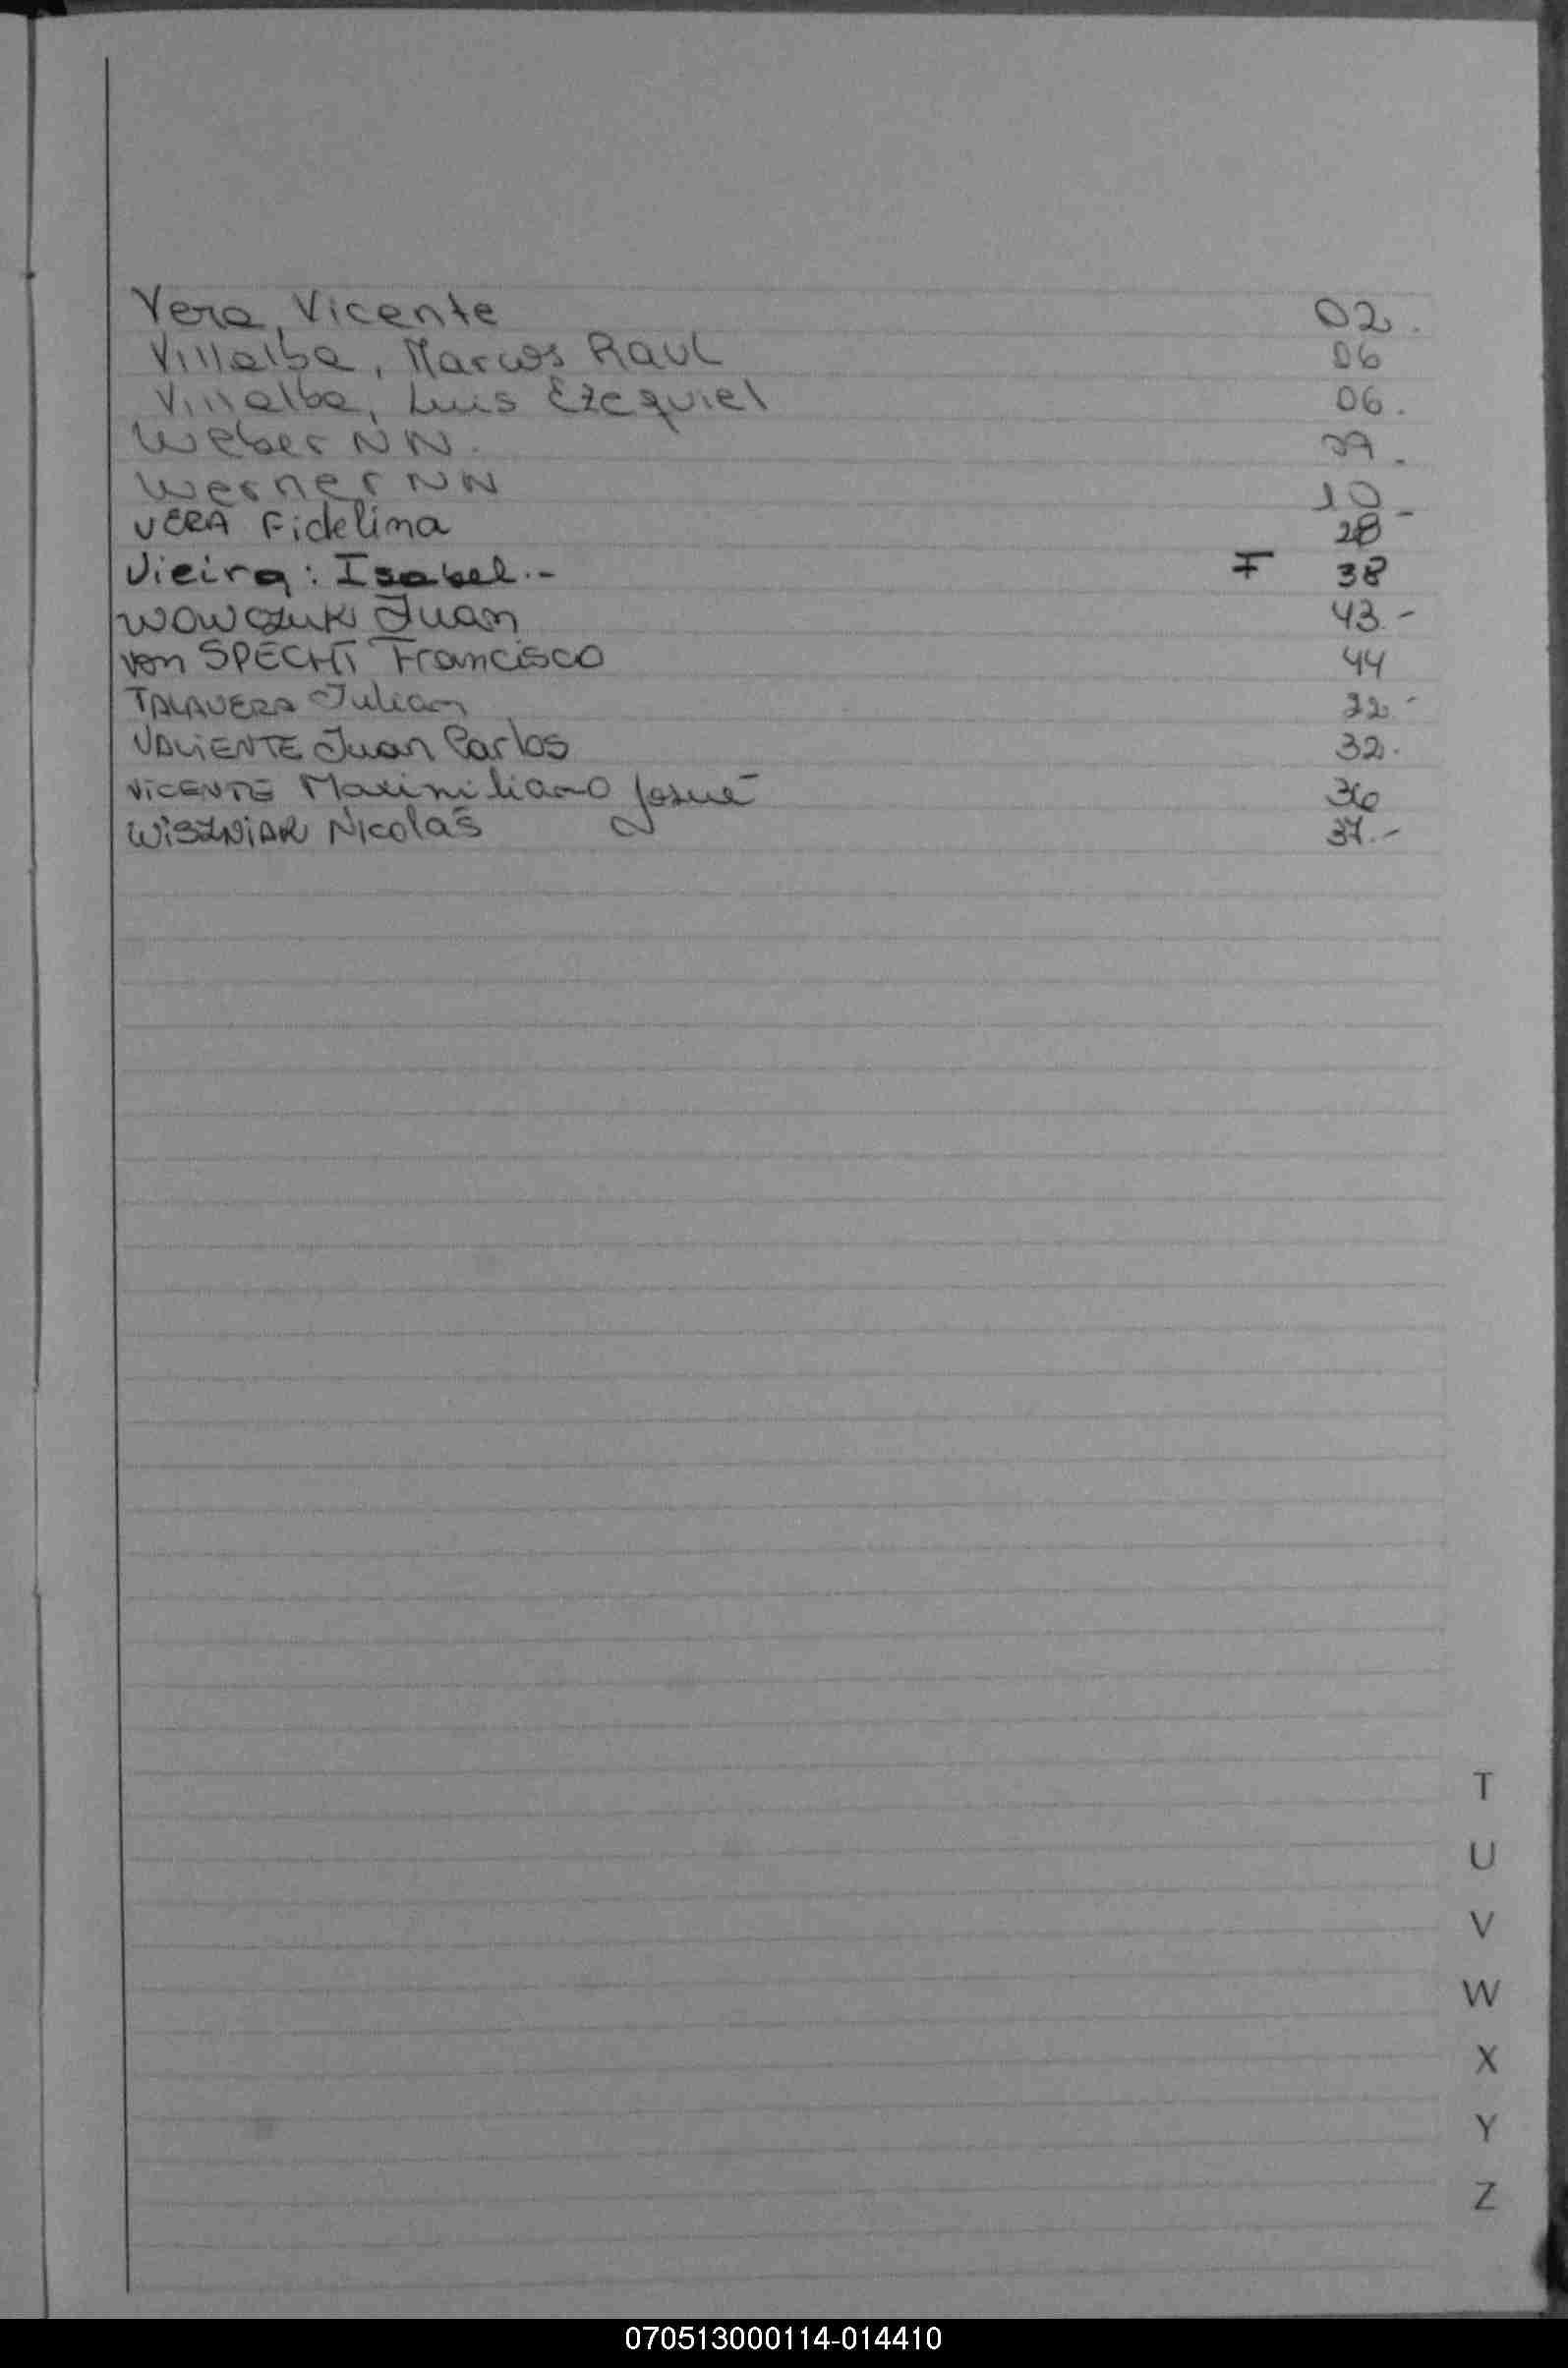 Vera, Vicente 02.
Villalba, Marcos Raul 06
Villalba, Luis Ezequiel 06.
Weber NN.
Werner NN 10 -
VERA Fidelima 28
Vieira: Isabel.- F 38
WOWCZUK Juan 43.-
von SPECHT Francisco 44
TALAVERA Julian 22.-
VALIENTE Juan Carlos 32.
VICENTE Maximiliano Josué 36
WISZNIAK Nicolás 37.-
T
U
V
W
X
Y
Z
070513000114-014410